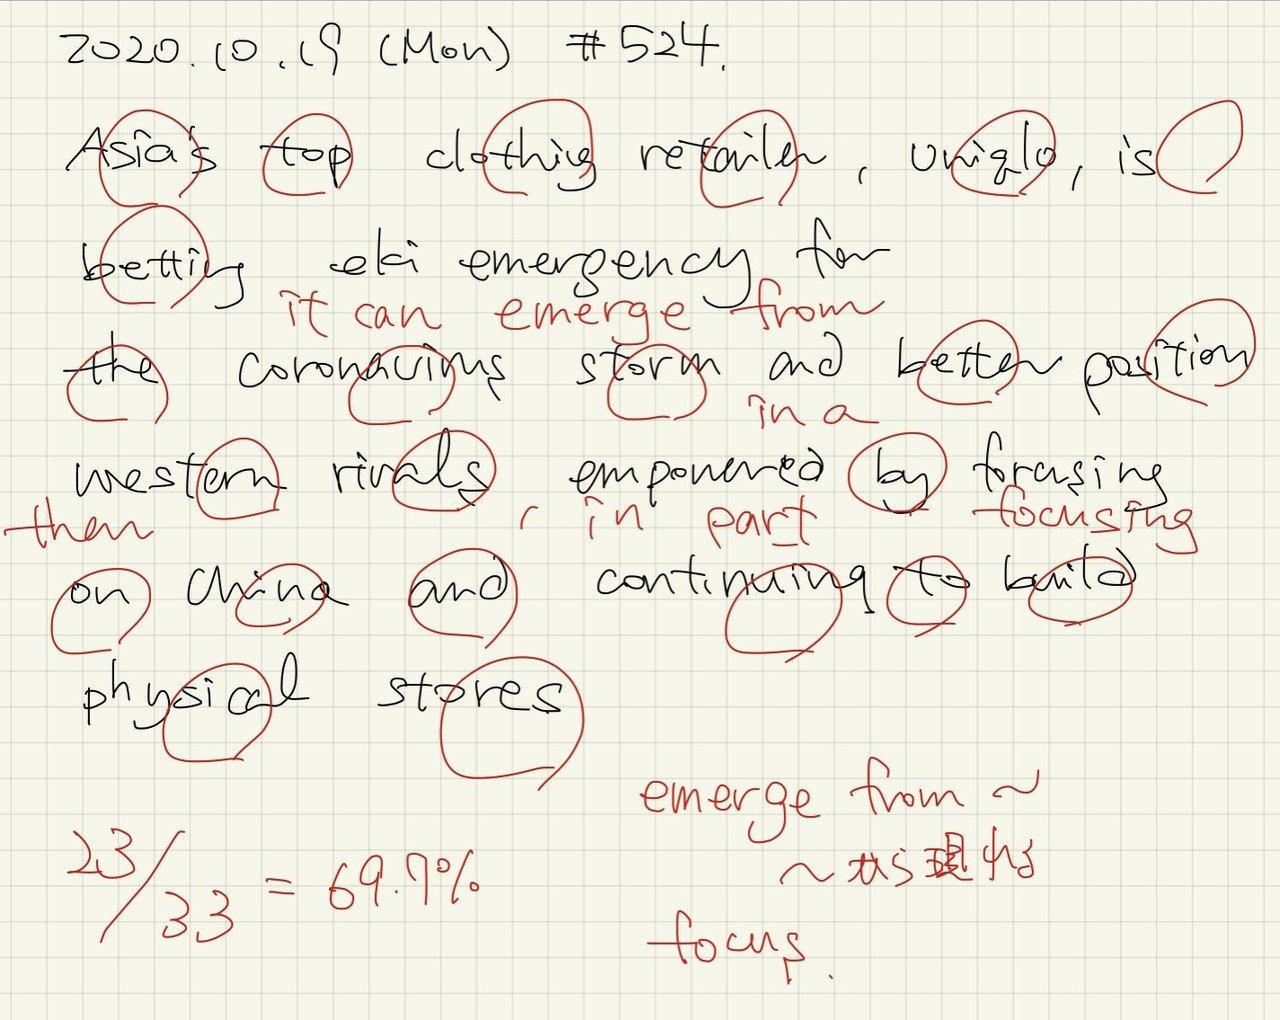 2020.10.19 (Mon) #524.
Asia's top clothing retailer, uniqlo, is
betting eki emergency for
it can emerge from
the coronavirus storm and better position
in a
western rivals empowered by forcusing
then , in part focusing
on China and continuing to build
physical stores
emerge from ~
~から現れる
23/33 = 69.7%
focus.